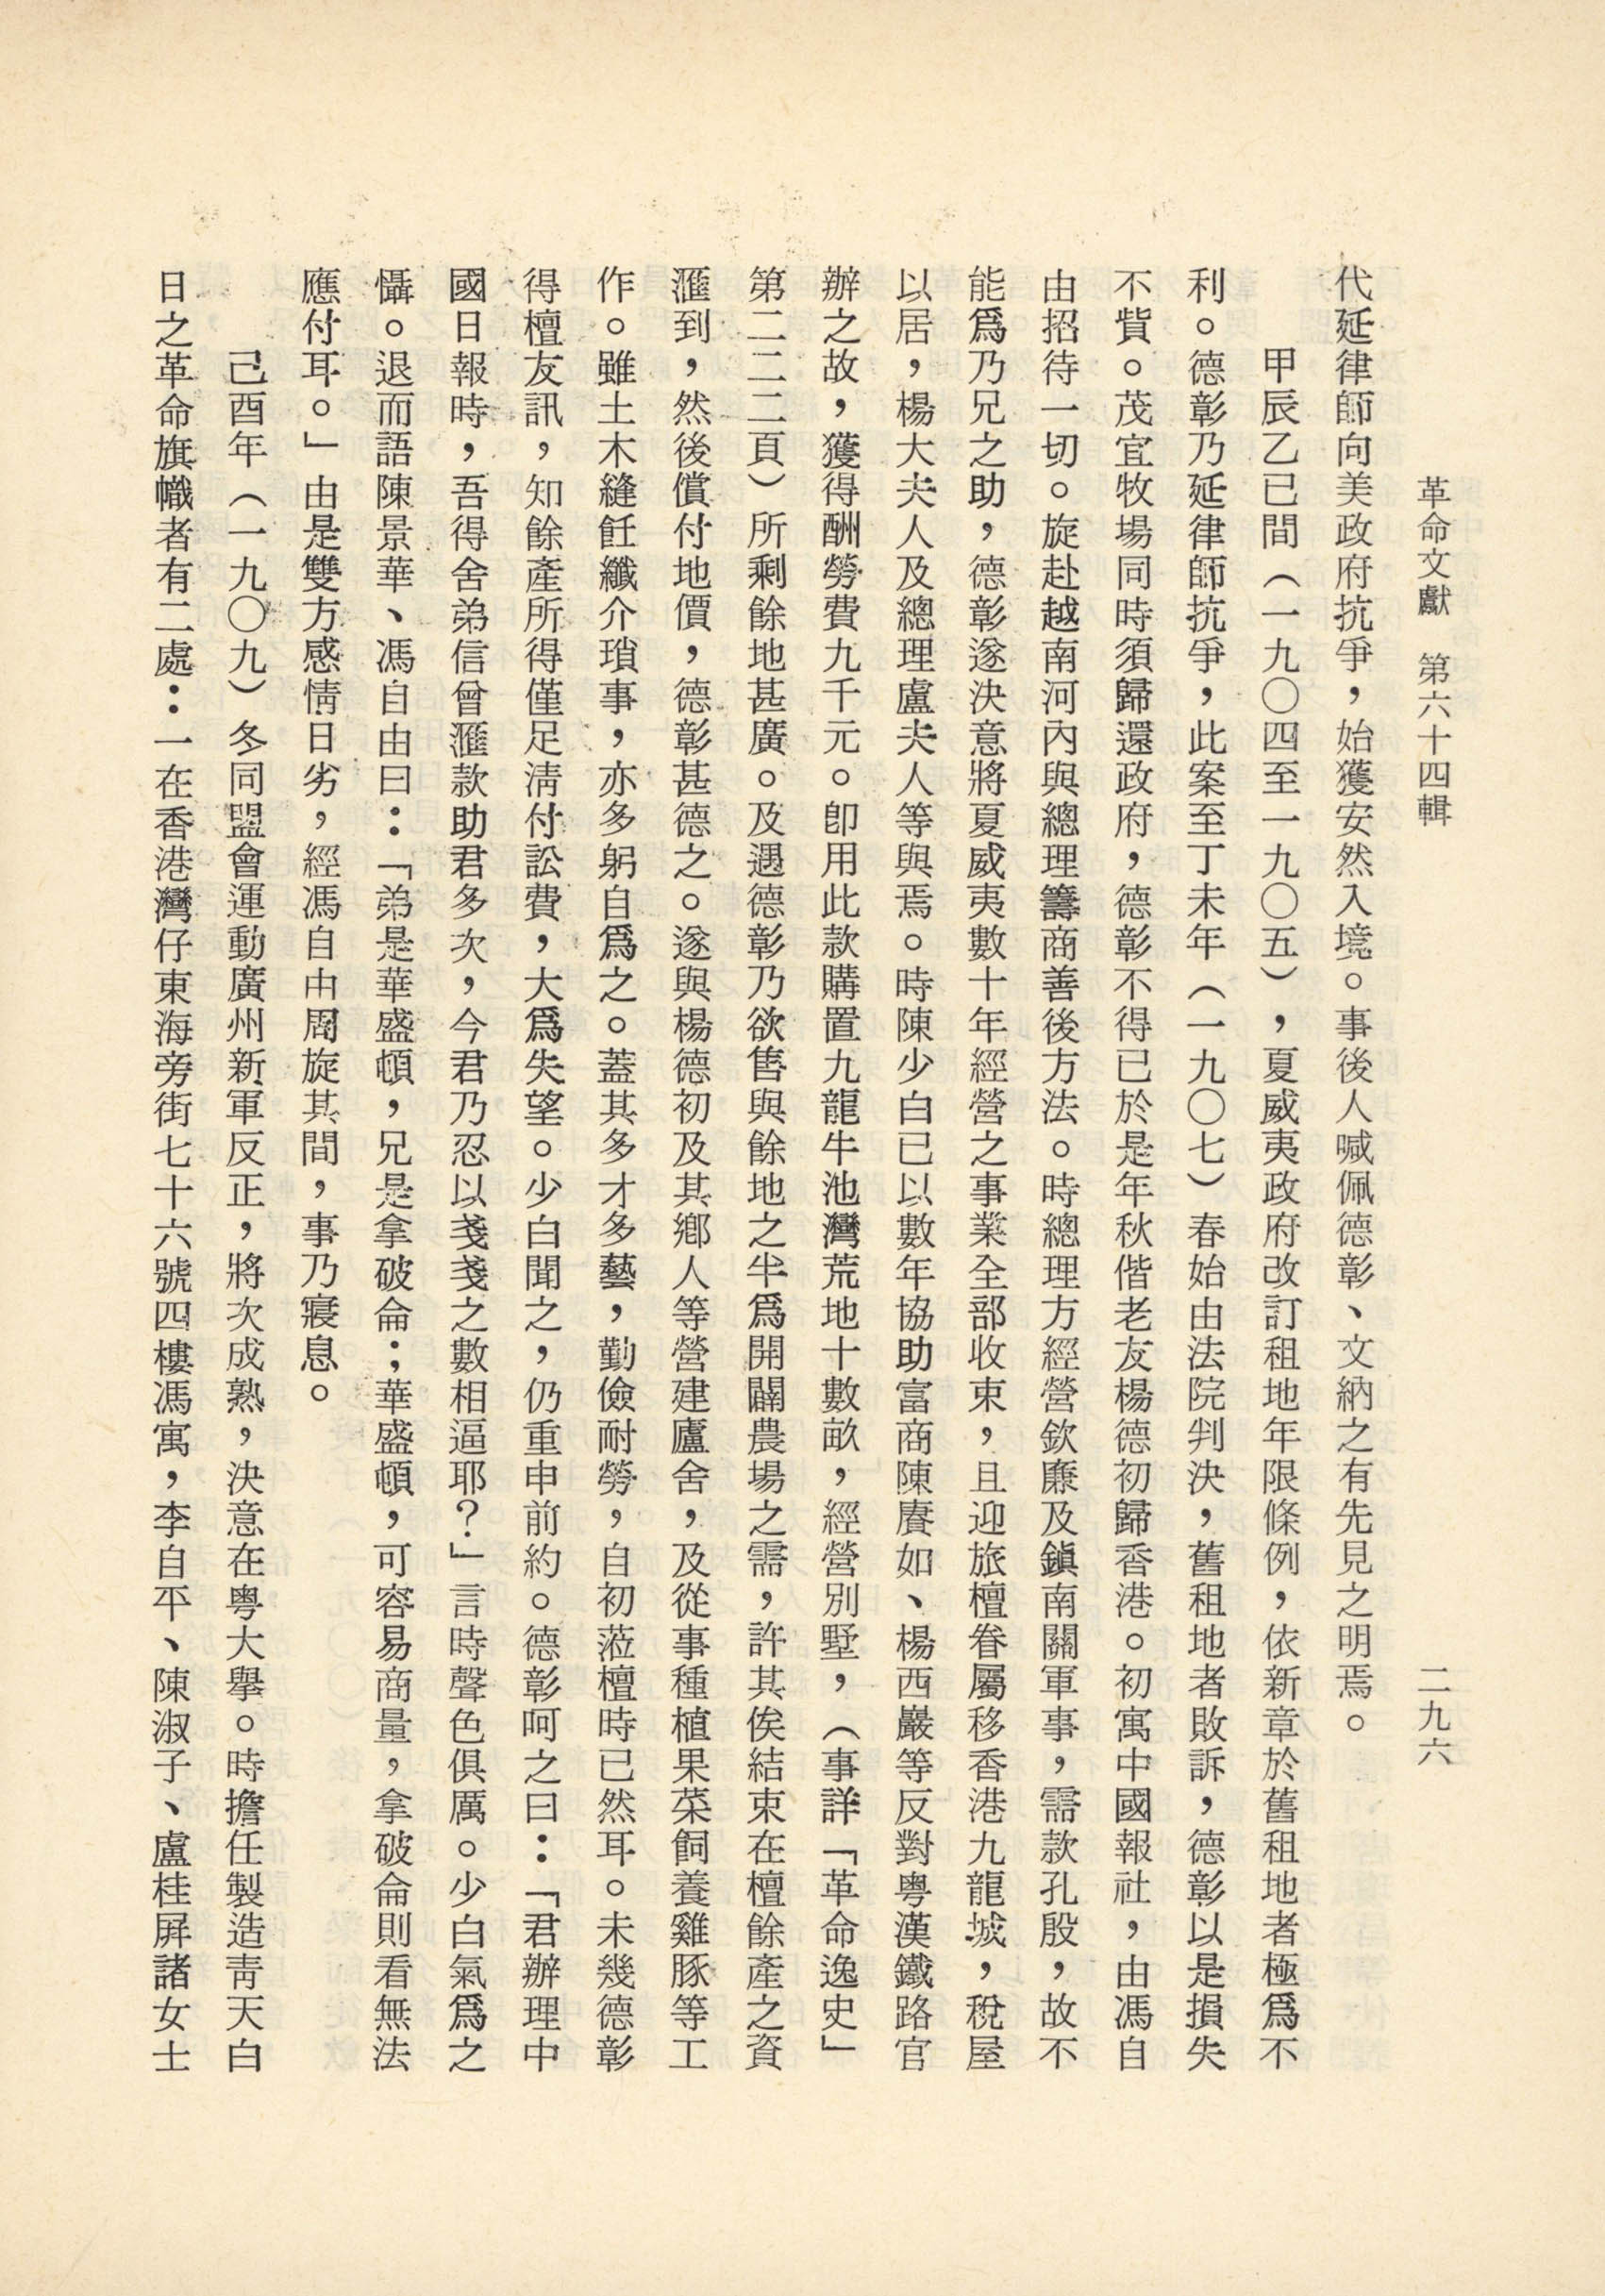 革命文獻　第六十四輯　二九六
代延律師向美政府抗爭，始獲安然入境。事後人咸佩德彰、文納之有先見之明焉。
甲辰乙已間（一九〇四至一九〇五），夏威夷政府改訂租地年限條例，依新章於舊租地者極爲不
利。德彰乃延律師抗爭，此案至丁未年（一九〇七）春始由法院判決，舊租地者敗訴，德彰以是損失
不貲。茂宜牧場同時須歸還政府，德彰不得已於是年秋偕老友楊德初歸香港。初寓中國報社，由馮自
由招待一切。旋赴越南河內與總理籌商善後方法。時總理方經營欽廉及鎭南關軍事，需款孔殷，故不
能爲乃兄之助，德彰遂決意將夏威夷數十年經營之事業全部收束，且迎旅檀眷屬移香港九龍城，稅屋
以居，楊大夫人及總理盧夫人等與焉。時陳少白已以數年協助富商陳賡如、楊西巖等反對粵漢鐵路官
辦之故，獲得酬勞費九千元。卽用此款購置九龍牛池灣荒地十數畝，經營別墅，（事詳「革命逸史」
第二二二頁）所剩餘地甚廣。及遇德彰乃欲售與餘地之半爲開闢農場之需，許其俟結束在檀餘產之資
滙到，然後償付地價，德彰甚德之。遂與楊德初及其鄉人等營建廬舍，及從事種植果菜飼養雞豚等工
作。雖土木縫飪纖介瑣事，亦多躬自爲之。蓋其多才多藝，勤儉耐勞，自初蒞檀時已然耳。未幾德彰
得檀友訊，知餘產所得僅足淸付訟費，大爲失望。少白聞之，仍重申前約。德彰呵之曰：「君辦理中
國日報時，吾得舍弟信曾滙款助君多次，今君乃忍以戔戔之數相逼耶？」言時聲色俱厲。少白氣爲之
懾。退而語陳景華、馮自由曰：「弟是華盛頓，兄是拿破侖；華盛頓，可容易商量，拿破侖則看無法
應付耳。」由是雙方感情日劣，經馮自由周旋其間，事乃寢息。
己酉年（一九〇九）冬同盟會運動廣州新軍反正，將次成熟，決意在粵大舉。時擔任製造靑天白
日之革命旗幟者有二處：一在香港灣仔東海旁街七十六號四樓馮寓，李自平、陳淑子、盧桂屏諸女士